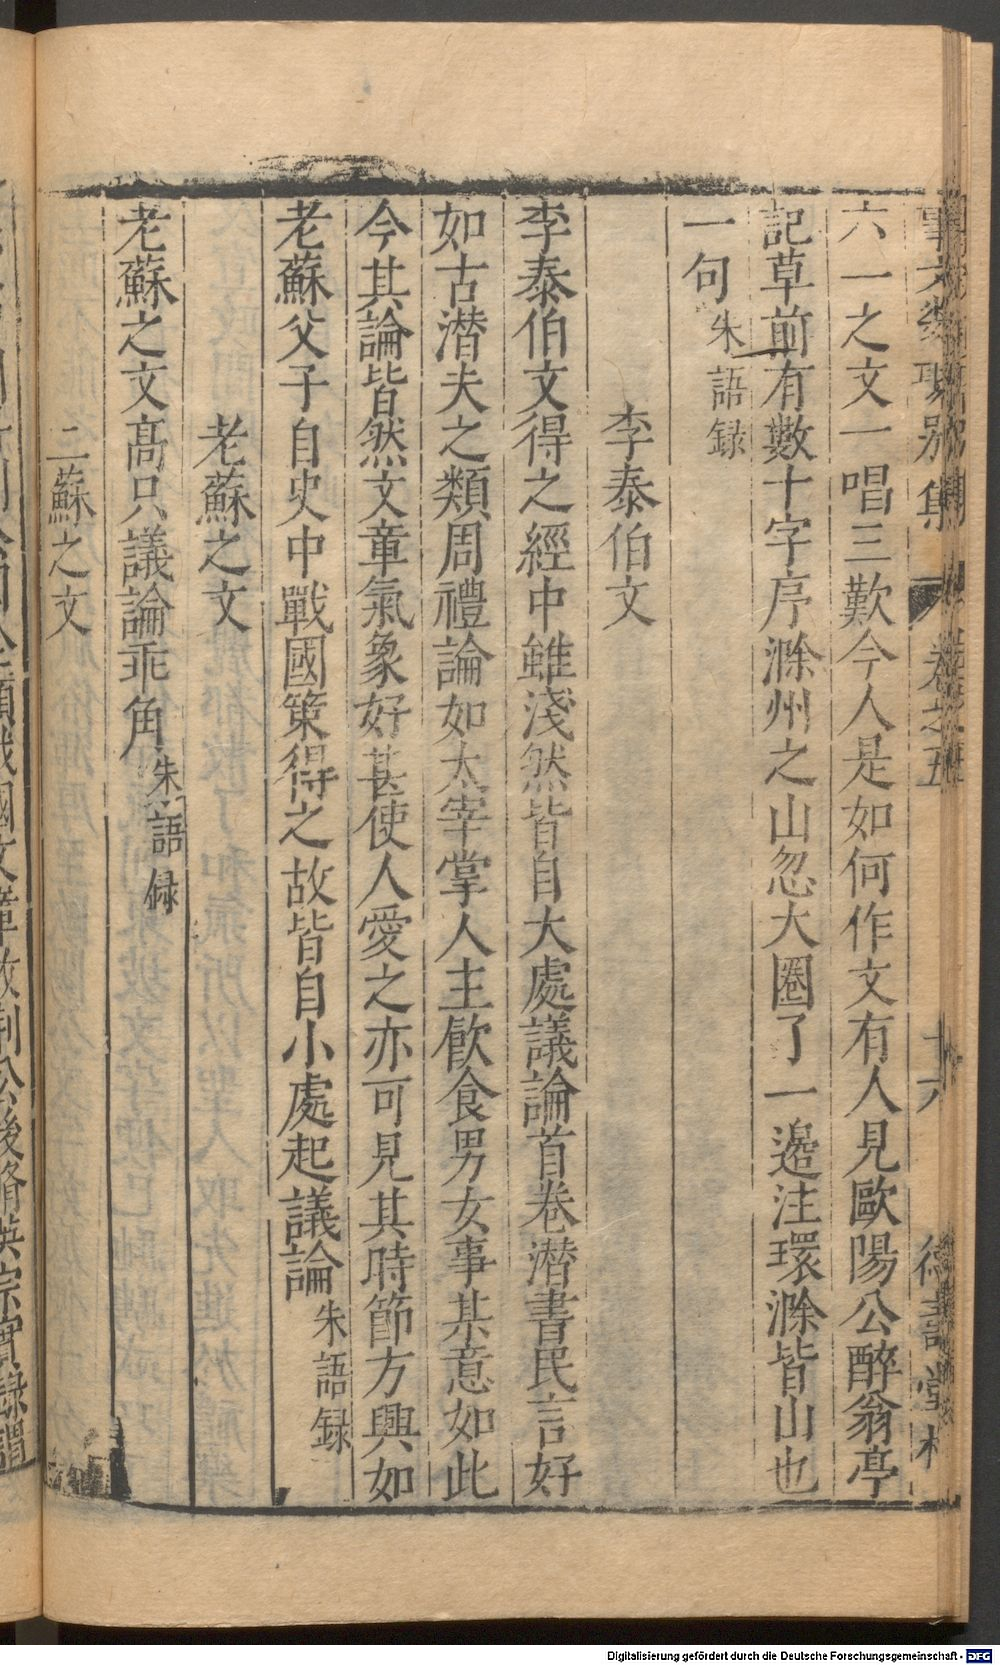 六一之文一唱三歎今人是如何作文有人見歐陽公醉翁亭
記草前有數十字序滁州之山忽大圈了一邊注環滁皆山也
一句朱語録
李泰伯文
李泰伯文得之經中雖淺然皆自大處議論首卷潜書民言好
如古潜夫之類周禮論如太宰掌人主飲食男女事某意如此
今其論皆然文章氣象好甚使人愛之亦可見其時節方興如
老蘇父子自史中戰國策得之故皆自小處起議論朱語録
老蘇之文
老蘇之文髙只議論乖角朱語録
二蘇之文
Digitalisierung gefördert durch die Deutsche Forschungsgemeinschaft - DFG